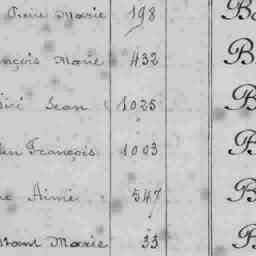 Pierre Marie 198 B
François Marie 432 B
Jean 1025 B
François 1003 B
Aimé 547 B
Constant Marie 33 B